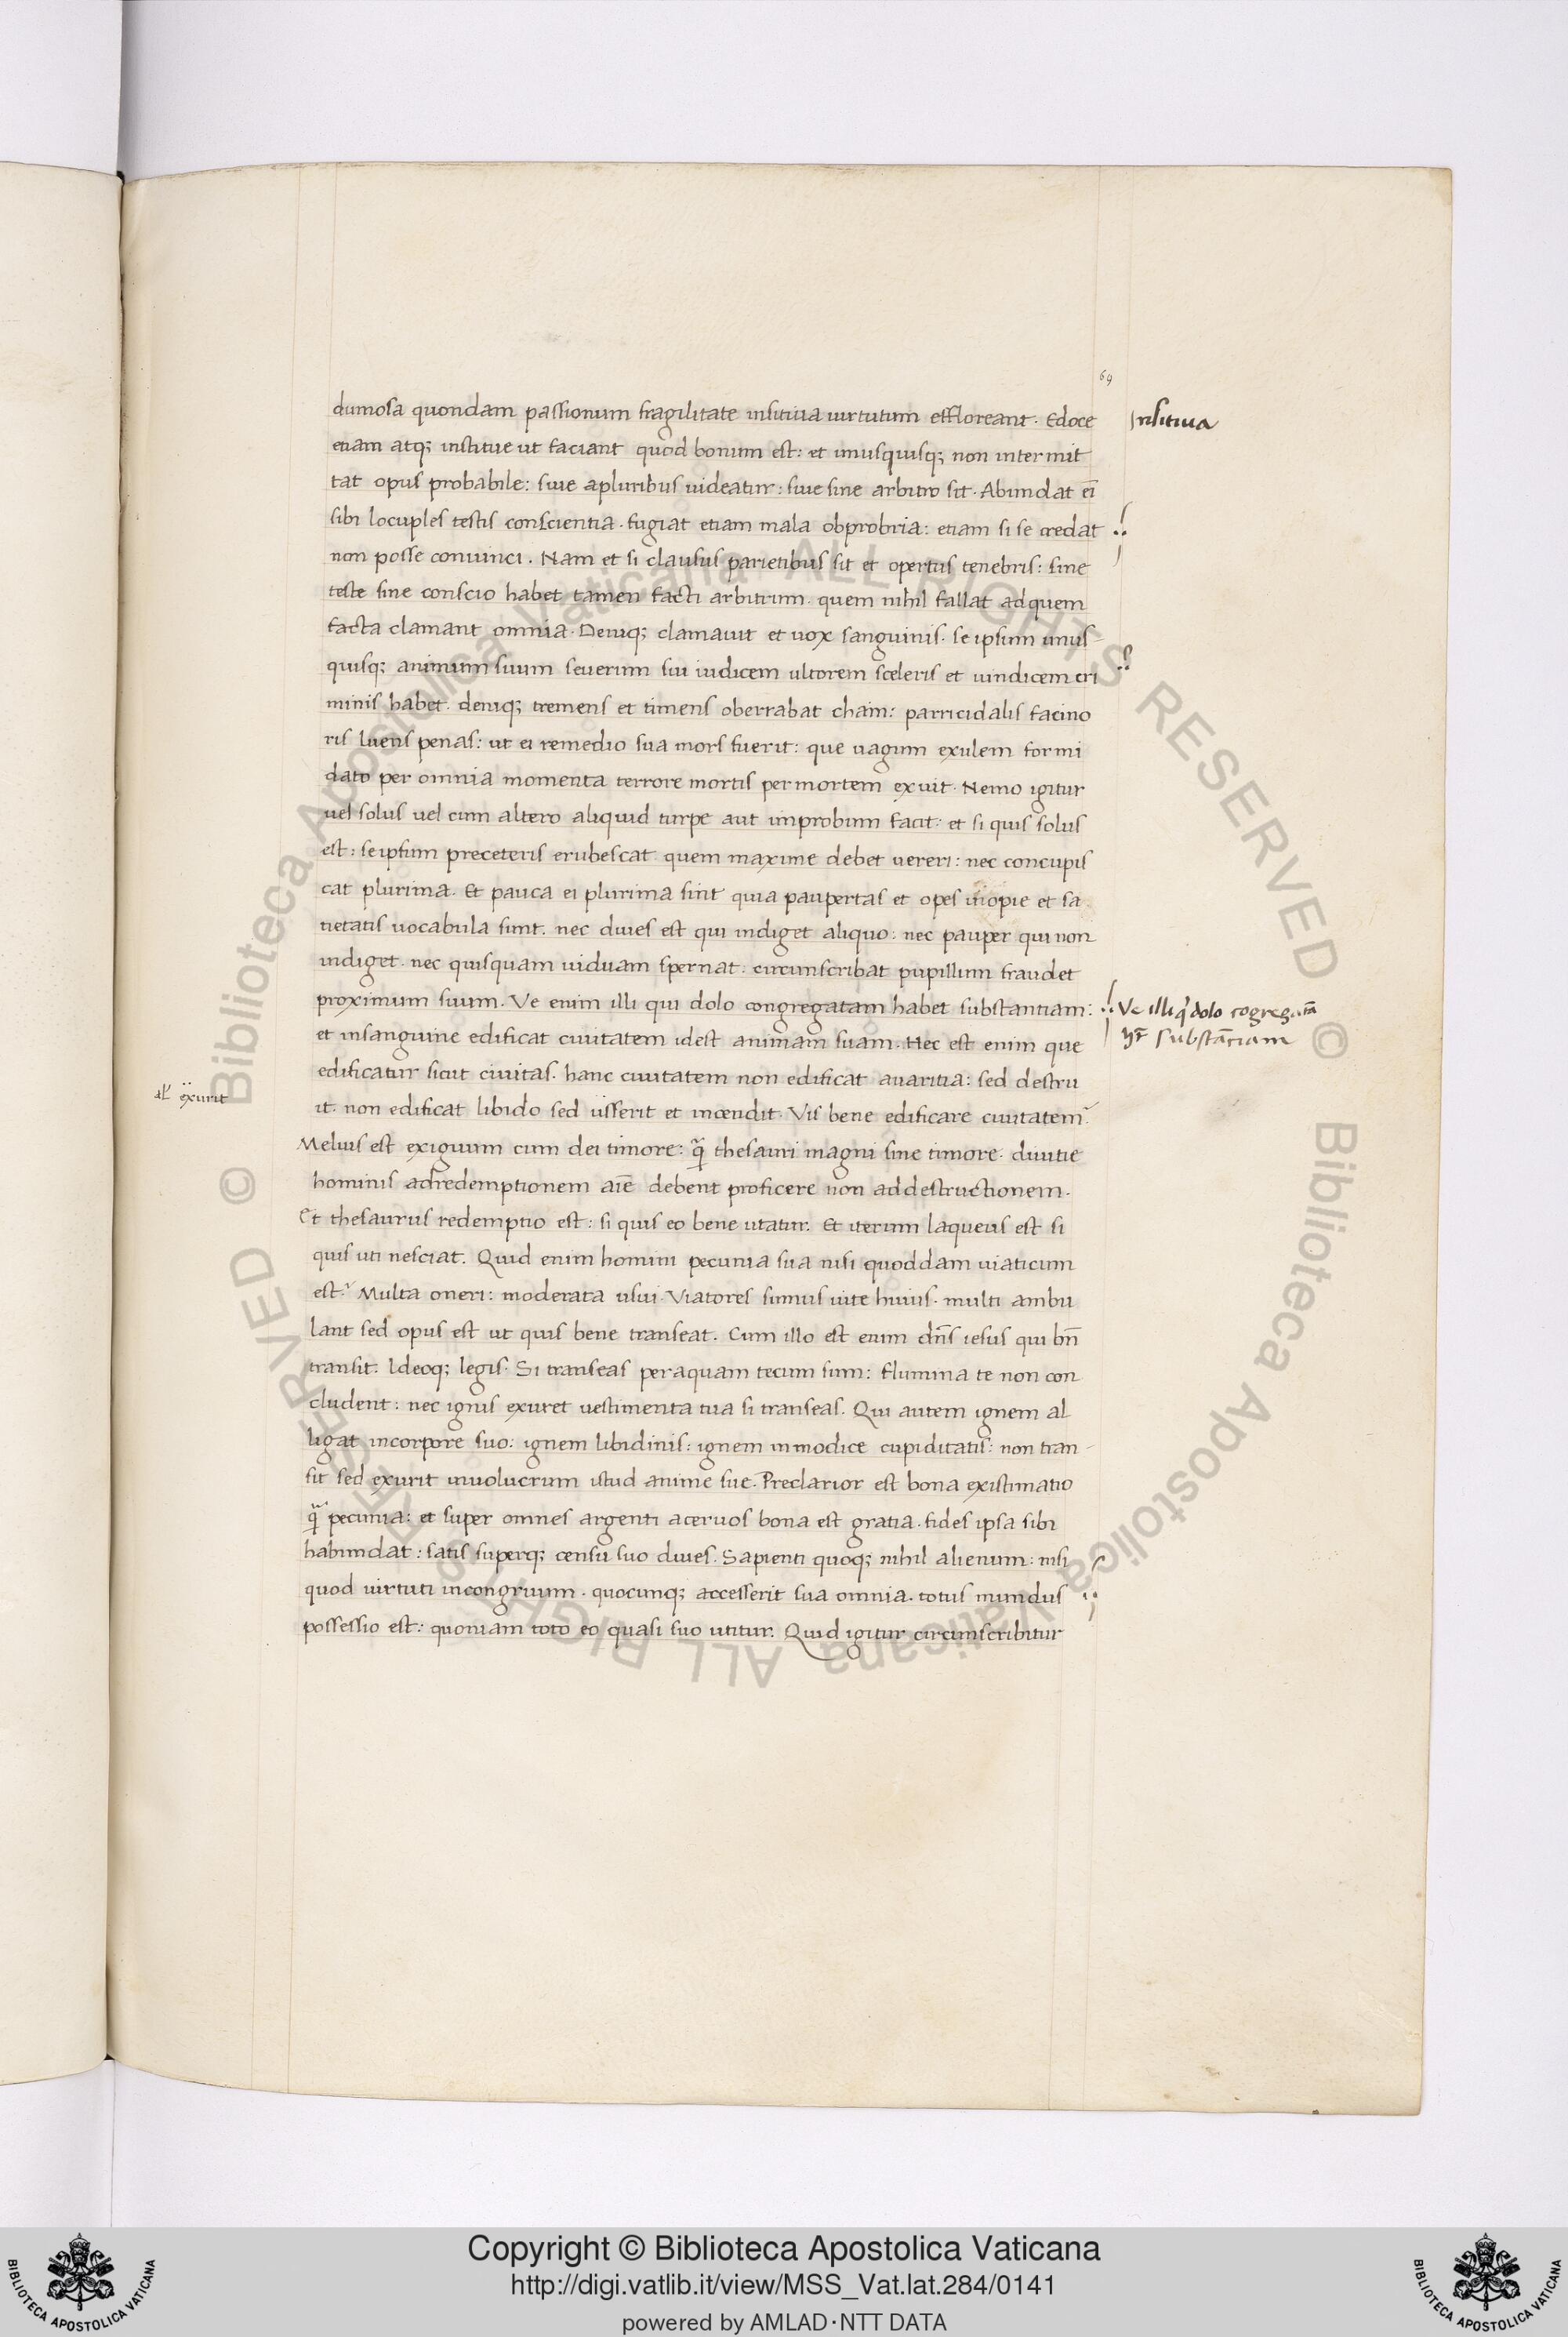 69
dumosa quondam passionum fragilitate insitiua uirtutum effloreant. Edoce
Insitiua
etiam atq; institue ut faciant quod bonum est: et unusquisq; non intermit
tat opus probabile: siue apluribus uideatur: siue sine arbitro sit. Abundat eī
sibi locuples testis conscientia. fugiat etiam mala obprobria: etiam si se credat
non posse conuinci. Nam et si clausus parietibus sit et opertus tenebris: sine
teste sine conscio habet tamen facti arbitrum. quem nihil fallat adquem
facta clamant omnia. Deniq; clamauit et uox sanguinis. se ipsum unus-
quisq; animum suum seuerum sui iudicem ultorem sceleris et uindicem cri
minis habet. deniq; tremens et timens oberrabat chain: parricidalis facino
ris luens penas: ut ei remedio sua mors fuerit: que uagum exulem formi
dato per omnia momenta terrore mortis per mortem exuit. Nemo igitur
uel solus uel cum altero aliquid turpe aut improbum facit: et si quis solus
est: seipsum preceteris erubescat quem maxime debet uereri: nec concupis
cat plurima. Et pauca ei plurima sint quia paupertas et opes inopie et sa
tietatis uocabula sunt. nec diues est qui indiget aliquo: nec pauper qui non
indiget. nec quisquam uiduam spernat. circunscribat pupillum fraudet
proximum suum. Ve enim illi qui dolo congregatam habet substantiam:
Ve illi q' dolo cogregatā
h̄t substātiam
et insanguine edificat ciuitatem idest animam suam. Hec est enim que
edificatur sicut ciuitas. hanc ciuitatem non edificat auaritia: sed destru
al' exurit
it. non edificat libido sed üsserit et incendit. Vis bene edificare ciuitatem?
Melius est exiguum cum dei timore: q̄ thesauri magni sine timore. diuitie
hominis adredemptionem aīe debent proficere non addestructionem.
Et thesaurus redemptio est: si quis eo bene utatur. Et iterum laqueus est si
quis uti nesciat. Quid enim homini pecunia sua nisi quoddam uiaticum
est? Multa oneri: moderata usui. Viatores sumus uite huius. multi ambu
lant sed opus est ut quis bene transeat. Cum illo est enim dn̄s iesus qui bn̄
transit. Ideoq; legis. Si transeas peraquam tecum sum: flumina te non con
cludent: nec ignis exuret uestimenta tua si transeas. Qui autem ignem al
ligat incorpore suo: ignem libidinis: ignem inmodice cupiditatis: non tran-
sit sed exurit inuolucrum istud anime sue. Preclarior est bona existimatio
q̄ pecunia: et super omnes argenti aceruos bona est gratia. fides ipsa sibi
habundat: satis superq; censu suo diues. Sapienti quoq; nihil alienum: nisi
quod uirtuti incongruum. quocunq; accesserit sua omnia. totus mundus
possessio est: quoniam toto eo quasi suo utitur. Quid igitur circunscribitur
© Biblioteca Apostolica Vaticana ALL RIGHTS RESERVED © Biblioteca Apostolica Vaticana ALL RIGHTS RESERVED
Copyright © Biblioteca Apostolica Vaticana
http://digi.vatlib.it/view/MSS_Vat.lat.284/0141
powered by AMLAD·NTT DATA
BIBLIOTECA APOSTOLICA VATICANA
BIBLIOTECA APOSTOLICA VATICANA